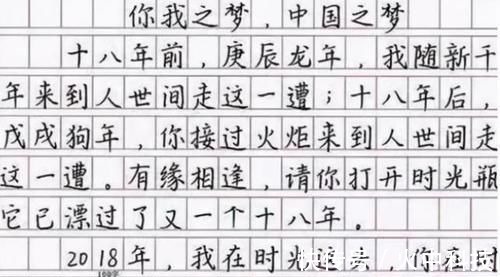 你我之梦，中国之梦
十八年前，庚辰龙年，我随新千
年来到人世间走这一遭；十八年后，
戊戌狗年，你接过火炬来到人世间走
这一遭。有缘相逢，请你打开时光瓶
它已漂过了又一个十八年。
2018年，我在时光
100字